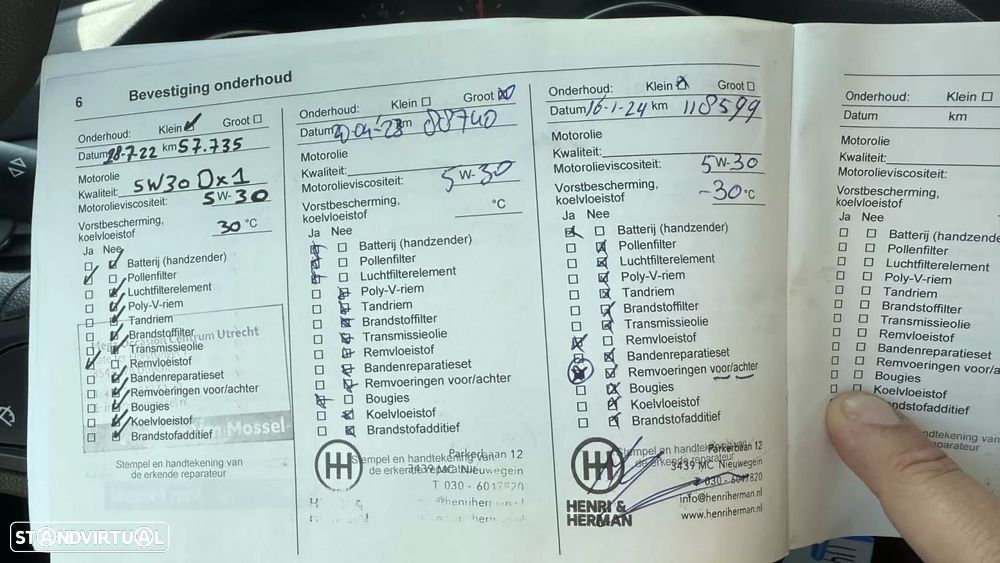 6 Bevestiging onderhoud
Onderhoud: Klein Groot
Datum 28-7-22 km 57.735
Motorolie
Kwaliteit: 5W30 Dx1
Motorolieviscositeit: 5W-30
Vorstbescherming,
koelvloeistof 30 °C
Ja Nee
Batterij (handzender)
Pollenfilter
Luchtfilterelement
Poly-V-riem
Tandriem
Brandstoffilter
Transmissieolie
Remvloeistof
Bandenreparatieset
Remvoeringen voor/achter
Bougies
Koelvloeistof
Brandstofadditief
Centrum Utrecht
Mossel
Stempel en handtekening van
de erkende reparateur
Onderhoud: Klein Groot
Datum 20-04-23 km 88740
Motorolie
Kwaliteit:
Motorolieviscositeit: 5W-30
Vorstbescherming,
koelvloeistof °C
Ja Nee
Batterij (handzender)
Pollenfilter
Luchtfilterelement
Poly-V-riem
Tandriem
Brandstoffilter
Transmissieolie
Remvloeistof
Bandenreparatieset
Remvoeringen voor/achter
Bougies
Koelvloeistof
Brandstofadditief
Stempel en handtekening van
de erkende reparateur
Parkerbaan 12
3439 MC Nieuwegein
T 030 - 6047820
Onderhoud: Klein Groot
Datum 16-1-24 km 118599
Motorolie
Kwaliteit:
Motorolieviscositeit: 5W-30
Vorstbescherming,
koelvloeistof -30 °C
Ja Nee
Batterij (handzender)
Pollenfilter
Luchtfilterelement
Poly-V-riem
Tandriem
Brandstoffilter
Transmissieolie
Remvloeistof
Bandenreparatieset
Remvoeringen voor/achter
Bougies
Koelvloeistof
Brandstofadditief
Stempel en handtekening van
de erkende reparateur
HENRI &
HERMAN
Parkerbaan 12
3439 MC Nieuwegein
T 030 - 6047820
info@henriherman.nl
www.henriherman.nl
Onderhoud: Klein
Datum km
Motorolie
Kwaliteit:
Motorolieviscositeit:
Vorstbescherming,
koelvloeistof
Ja Nee
Batterij (handzende
Pollenfilter
Luchtfilterelement
Poly-V-riem
Tandriem
Brandstoffilter
Transmissieolie
Remvloeistof
Bandenreparatieset
Remvoeringen voor/a
Bougies
Koelvloeistof
ndstofadditief
handtekening van
reparateur
STANDVIRTUAL